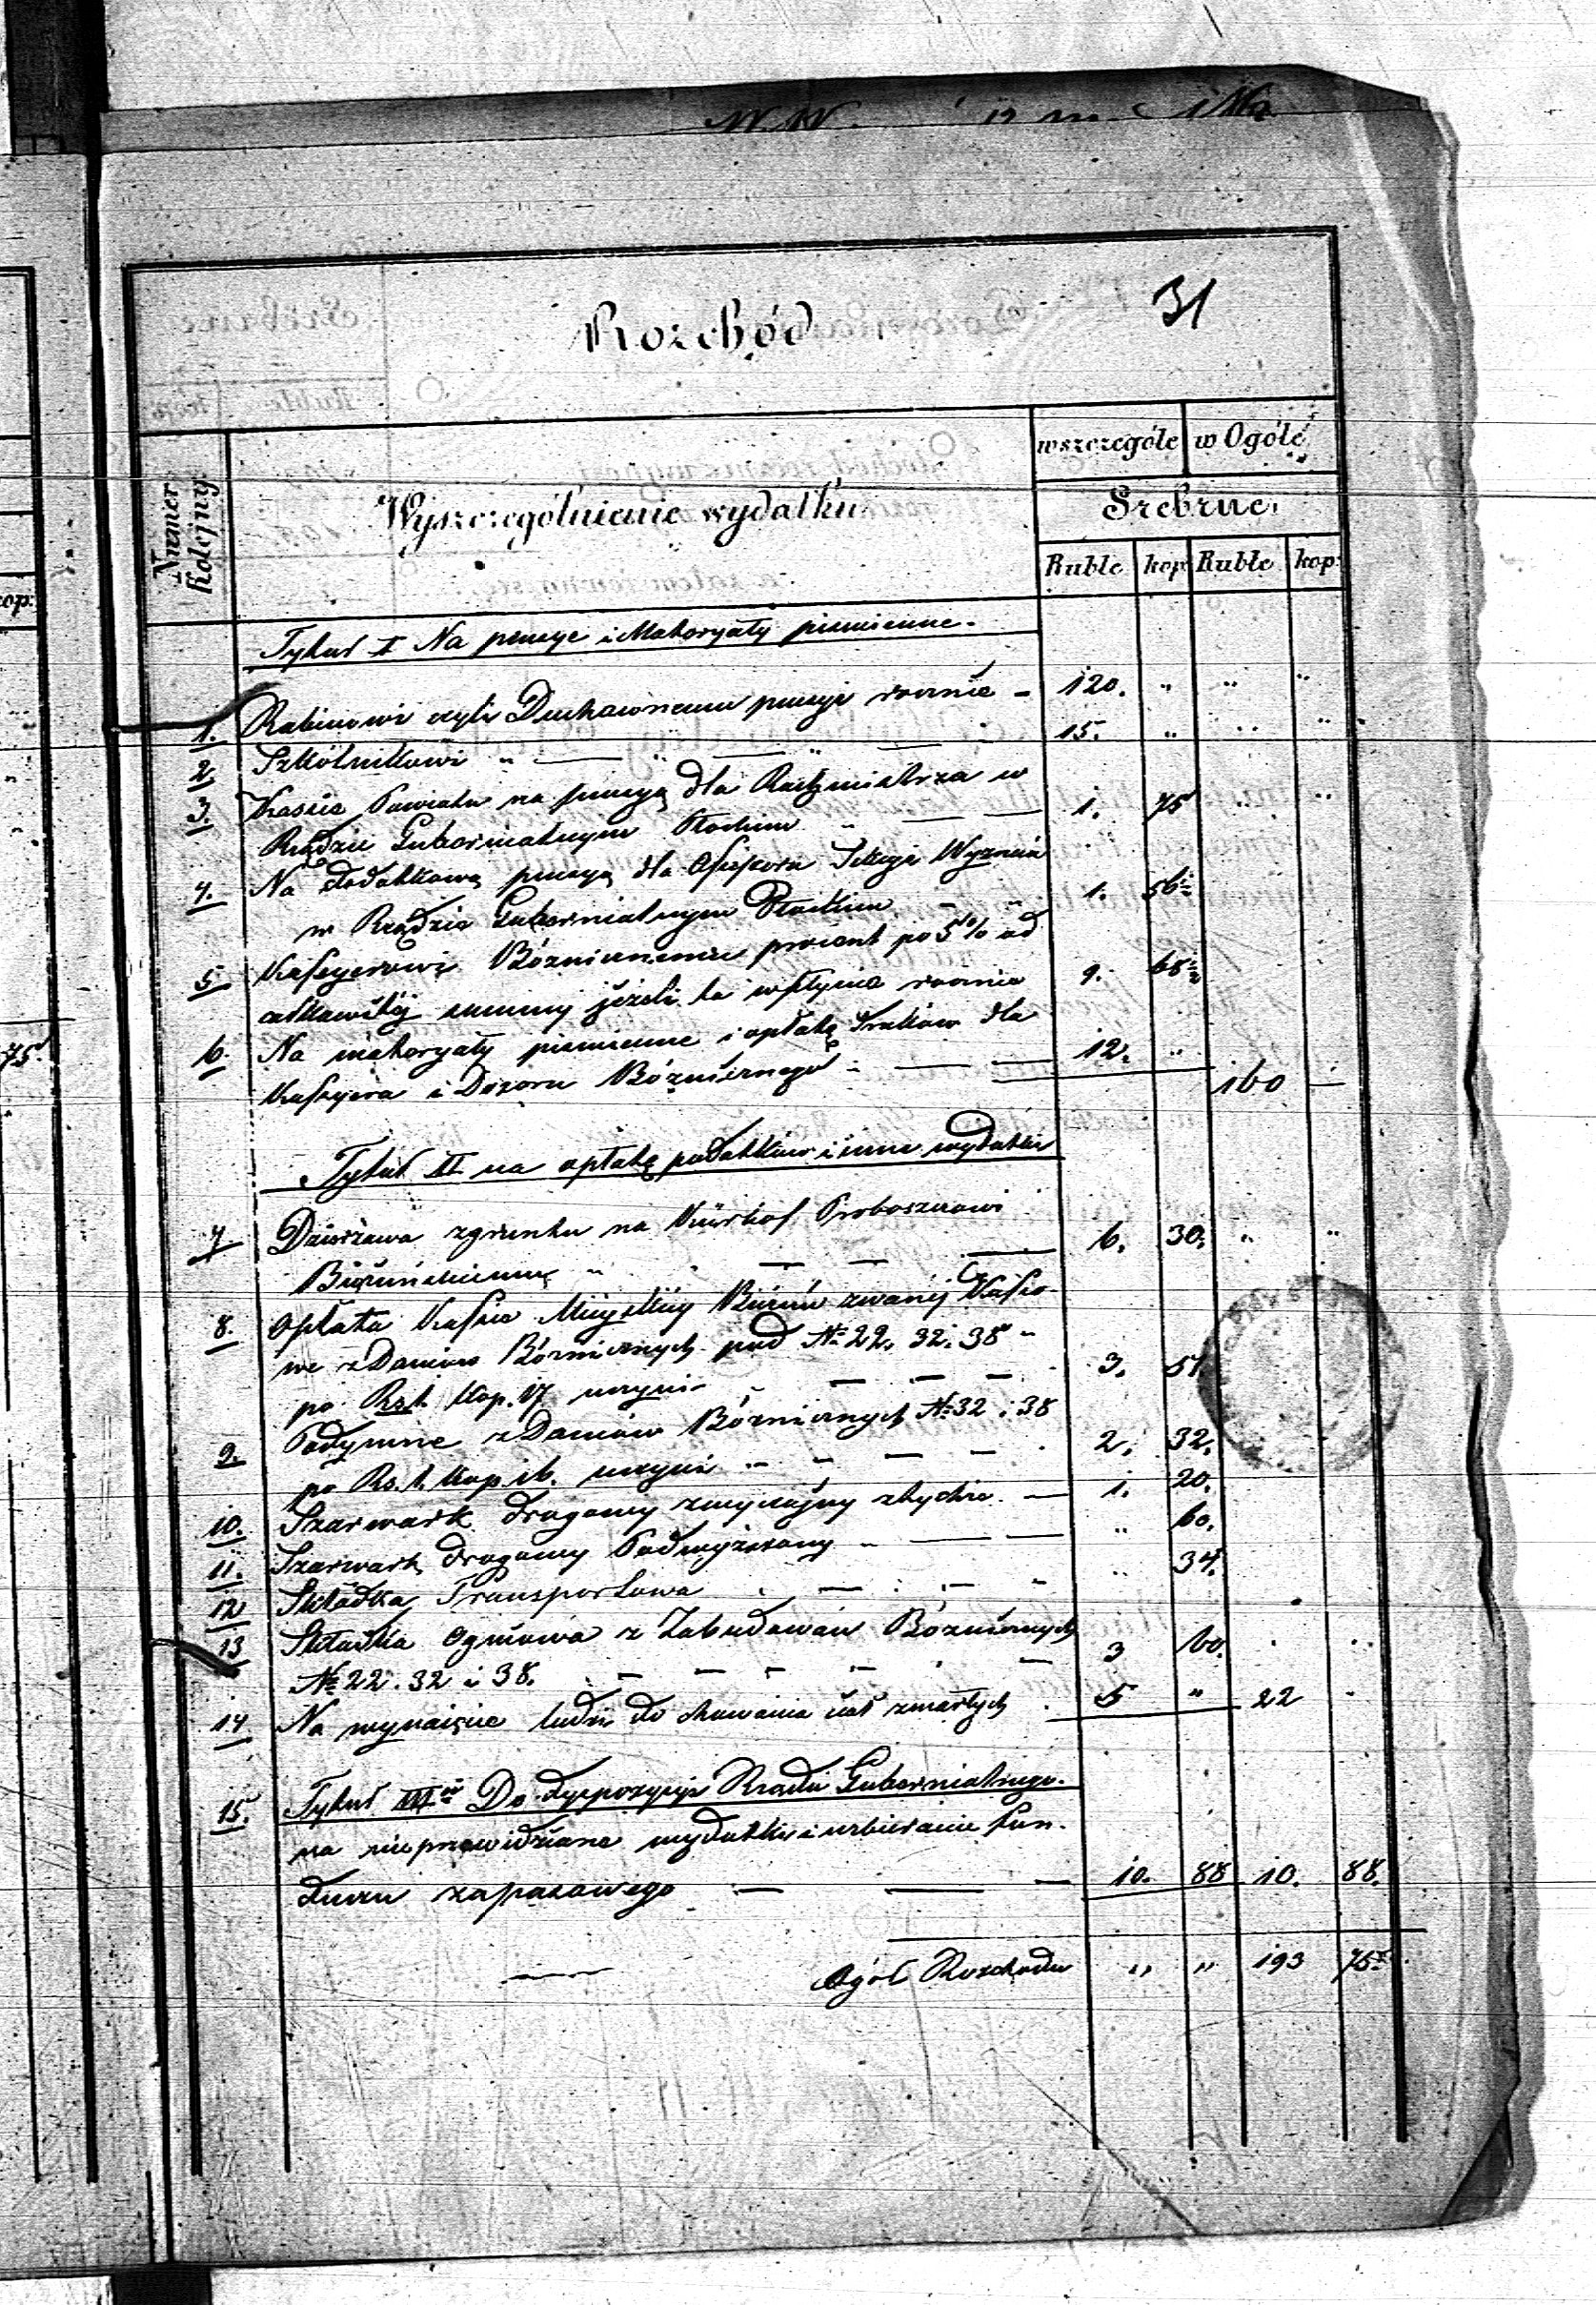 31
Rozchód
Numer Kolejny
Wyszczególnienie wydatku
wszczególe
w Ogóle
Srebrne
Ruble
kop:
Ruble
kop:
Tytuł I Na pensye i Materyały pismienne.
1. Rabinowi czyli Duchownemu pensyi rocznie – 120. " " "
2. Szkólnikowi " — " — 15. " " "
3. Kassie Powiatu na pensyą dla Rachmistrza w
Rządzie Gubernialnym Płockim " — — 1. 75 " "
4. Na dodatkową pensyą dla Assesora Sekcyi Wyznań
w Rządzie Gubernialnym Płockim – " 1. 56½
5 Kassyerowi Bóżnicznemu procent po 5% od
całkowitéj summy jeżeli ta wpłynie rocznie 9. 68½
6. Na materyały pismienne i opłatę druków dla
Kassyera i Dozoru Bóżnicznego – — — 12. "
160 —
Tytuł II na opłatę podatków i inne wydatki
7 Dzierżawa z gruntu na Kirkof Proboszczowi
Bieżuńskiemu " — — — 6. 30. " "
8. Opłata Kassie Miejskiéj Bieżuń zwanéj
we z Domów Bóżnicznych pod № 22, 32. 38 "
po Rs. 1. kop. 17 czyni – — — — 3. 51
9. Podymne z Domów Bóżnicznych № 32 i 38
po Rs. 1. kop. 16. czyni – – — — 2. 32.
10. Szarwark drogowy zwyczajny z tychże. — 1. 20.
11. Szarwark drogowy Podwyższony – — — " 60.
12 Składka Transportowa . — . — – " 34.
13 Składka Ogniowa z Zabudowań Bóżnicznych
№ 22. 32 i 38. – — – — — 3 60.
14 Na wynajęcie ludzi do chowania ciał zmarłych . 5 " 22 -
15. Tytuł III Do dyspozycyi Rządu Gubernialnego.
na nieprzewidziane wydatki i uzbieranie fun-
duszu zapasowego — — — 10. 88 10. 88.
— Ogół Rozchodu " " 193 75
op:
75.